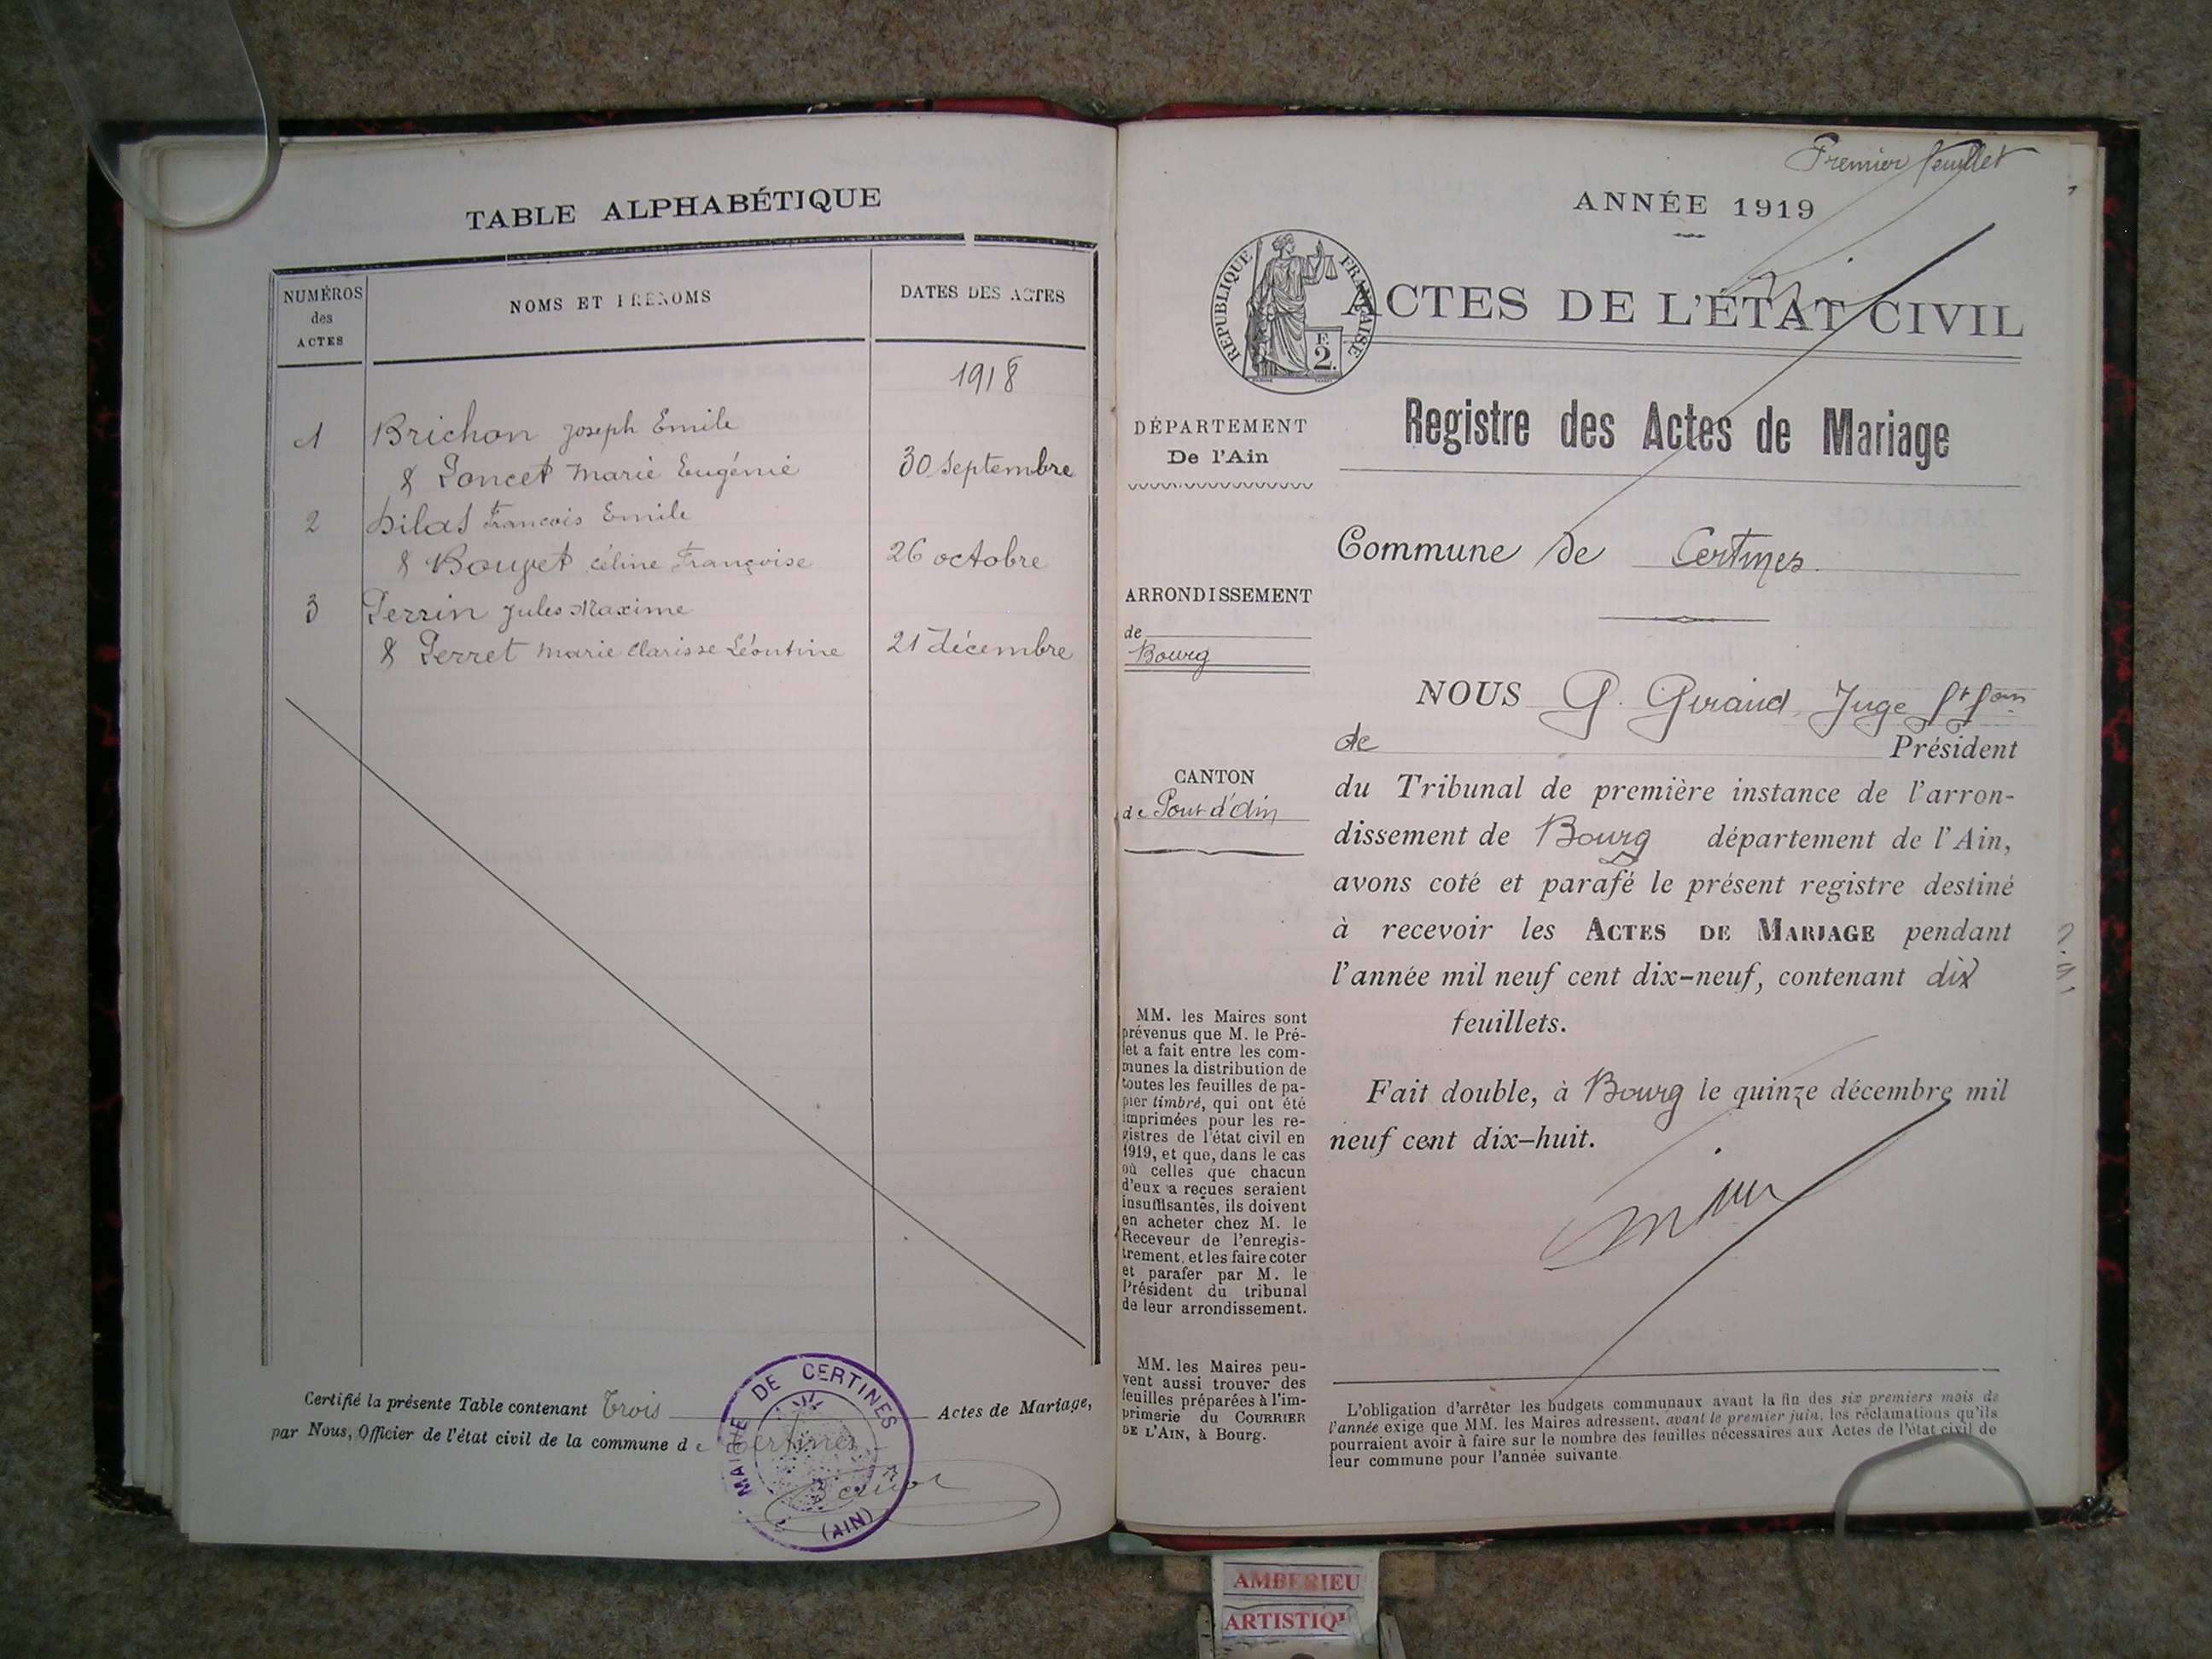 TABLE ALPHABÉTIQUE
NUMÉROS
des
ACTES
NOMS ET PRÉNOMS
DATES DES ACTES
1918
1 Brichon Joseph Emile
& Poncet Marie Eugénie 30 septembre
2 François Emile
& Bouvet Céline Françoise 26 octobre
3 Perrin Jules Maxime
& Perret Marie Clarisse Léontine 21 décembre
Certifié la présente Table contenant trois Actes de Mariage,
par Nous, Officier de l'état civil de la commune de Certines
MAIRIE DE CERTINES
(AIN)
Premier feuillet
ANNÉE 1919
RÉPUBLIQUE FRANÇAISE
F.
2.
ACTES DE L'ÉTAT CIVIL
Registre des Actes de Mariage
DÉPARTEMENT
De l'Ain
Commune de Certines
ARRONDISSEMENT
de
Bourg
CANTON
de Pont d'Ain
NOUS G. Giraud, Juge
de Président
du Tribunal de première instance de l'arron-
dissement de Bourg département de l'Ain,
avons coté et parafé le présent registre destiné
à recevoir les ACTES DE MARIAGE pendant
l'année mil neuf cent dix-neuf, contenant dix
feuillets.
Fait double, à Bourg le quinze décembre mil
neuf cent dix-huit.
MM. les Maires sont
prévenus que M. le Pré-
fet a fait entre les com-
munes la distribution de
toutes les feuilles de pa-
pier timbré, qui ont été
imprimées pour les re-
gistres de l'état civil en
1919, et que, dans le cas
où celles que chacun
d'eux a reçues seraient
insuffisantes, ils doivent
en acheter chez M. le
Receveur de l'enregis-
trement, et les faire coter
et parafer par M. le
Président du tribunal
de leur arrondissement.
MM. les Maires peu-
vent aussi trouver des
feuilles préparées à l'im-
primerie du COURRIER
DE L'AIN, à Bourg.
L'obligation d'arrêter les budgets communaux avant la fin des six premiers mois de
l'année exige que MM. les Maires adressent, avant le premier juin, les réclamations qu'ils
pourraient avoir à faire sur le nombre des feuilles nécessaires aux Actes de l'état civil de
leur commune pour l'année suivante.
AMBERIEU
ARTISTIQU